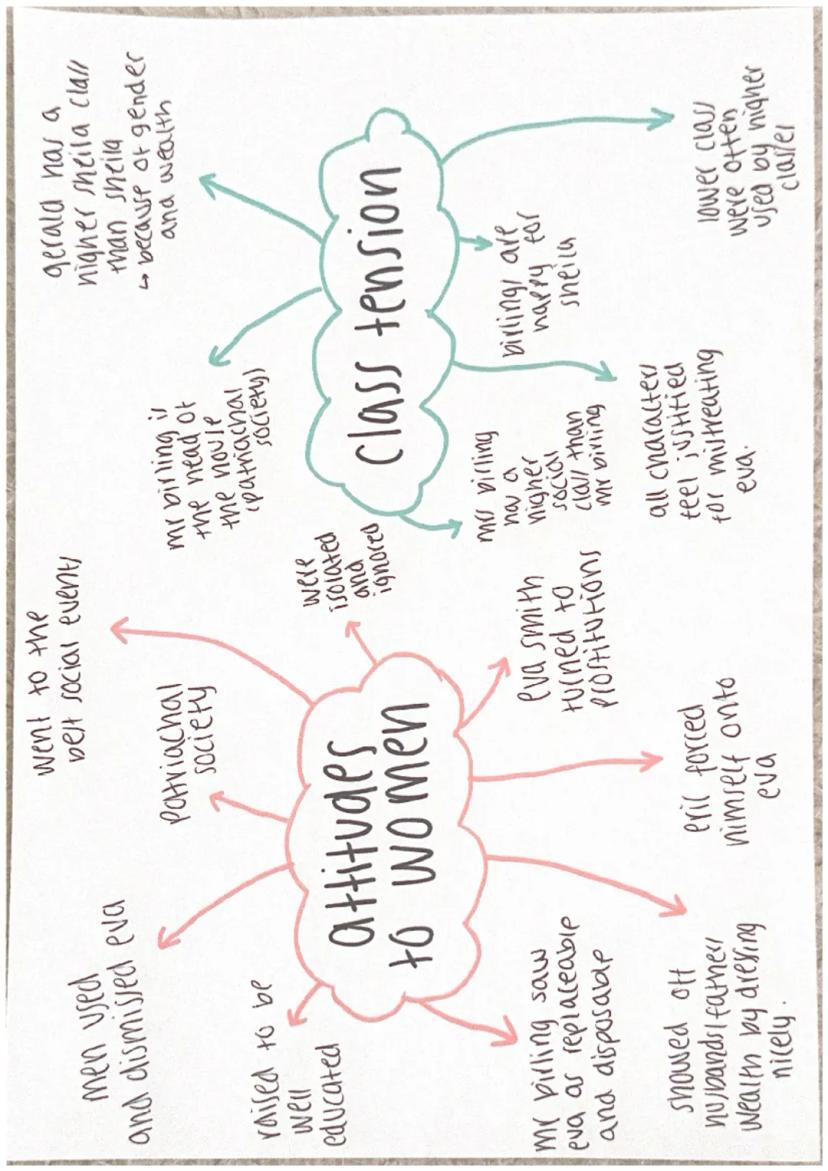 attitudes
to women
men used
and dismissed eva
patriachal
society
went to the
best social events
were
isolated
and
ignored
eva smith
turned to
prostitutions
eric forced
himself onto
eva
showed off
husbands/fathers
wealth by dressing
nicely.
mr birling saw
eva as replaceable
and disposable
raised to be
well
educated
class tension
mr birling is
the head of
the house
(patriachal
society)
gerald has a
higher sheila class
than sheila
↳ because of gender
and wealth
lower class
were often
used by higher
classes
birlings are
happy for
sheila
all characters
feel justified
for mistreating
eva.
mrs birling
has a
higher
social
class than
mr birling